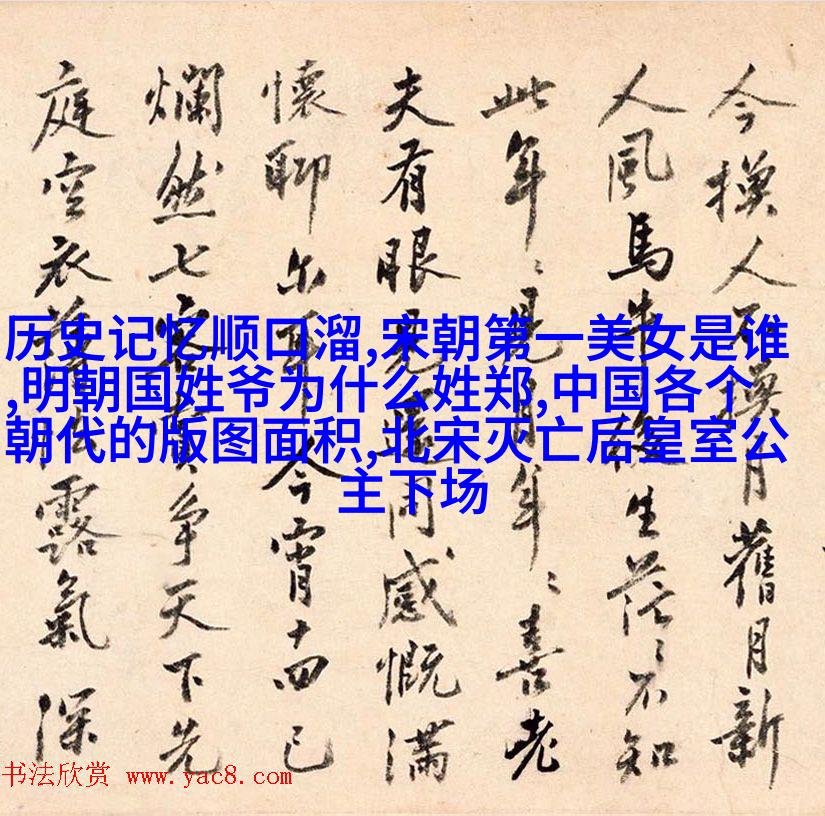 历史记忆顺口溜,宋朝第一美女是谁
,明朝国姓爷为什么姓郑,中国各个
朝代的版图面积,北宋灭亡后皇室公
主下场
今換人不換月舊月新
人風馬牛後生茫〻不知
此年〻見月年〻喜老
夫有眼見還同感慨滿
懷聊尔耳今宵十四已
爛然七客爭天下先
庭空衣露氣深
书法欣赏 www.yac8.com